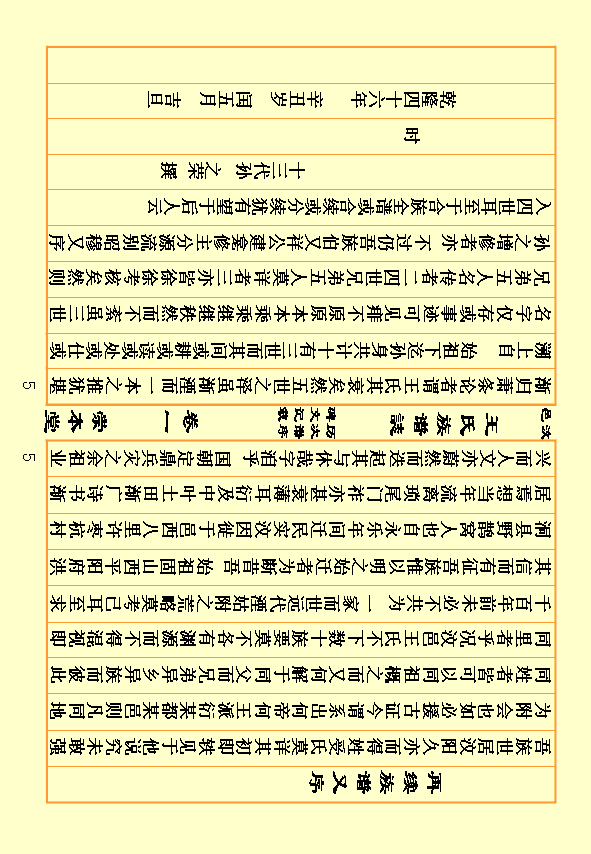 再续族谱又序
吾族世居汶阳久亦而得姓受氏莫详其初即较见于他说究未敢强
为附会也如必援古证今谓系出何帝何王派衍某都某邑则凡同地
同姓者皆可以同祖概之而又何解于同父而兄弟异乡异族而彼此
同里者乎况汶邑王氏不下数十族要莫不各有渊源而不得混视即
千百年前未必不共为一家而世远代湮姑附之荒略莫考已耳至求
其信而有征吾族惟以明之始迁者为断昔吾 始祖固山西平阳府洪
洞县野鹊窝人也自永乐年间迁民实汶因徙于邑西八里许寥杭村
居焉想当年流离琐尾门祚亦甚衰薄耳衍及中叶土田渐广诗书渐
兴人而文亦蔚然而迭起其与休哉洎乎 国朝定鼎兵灾之余祖业
汶邑
王氏族谱誌
历次谱序
碑文记载
卷一
崇本堂
5
5
渐归萧条论者谓王氏其衰矣然五世之泽虽渐湮而一本之推犹堪
溯上自 始祖下迄孙身共计十有三世而其间或耕或读或处或仕或
名字仅存或事迹可见不难原原本本乘乘继继秩然而不紊虽三世
兄弟五人名传者一二四世兄弟五人莫详者三亦皆徐徐考核矣然则
孙之增修者亦不过仍吾族伯又祥公建 主分源流别昭穆又序
入四世耳至于合族全谱或合续或分续犹有望于后人云
十三代孙 之荣 撰
时
乾隆四十六年 辛丑岁 闰五月 吉旦